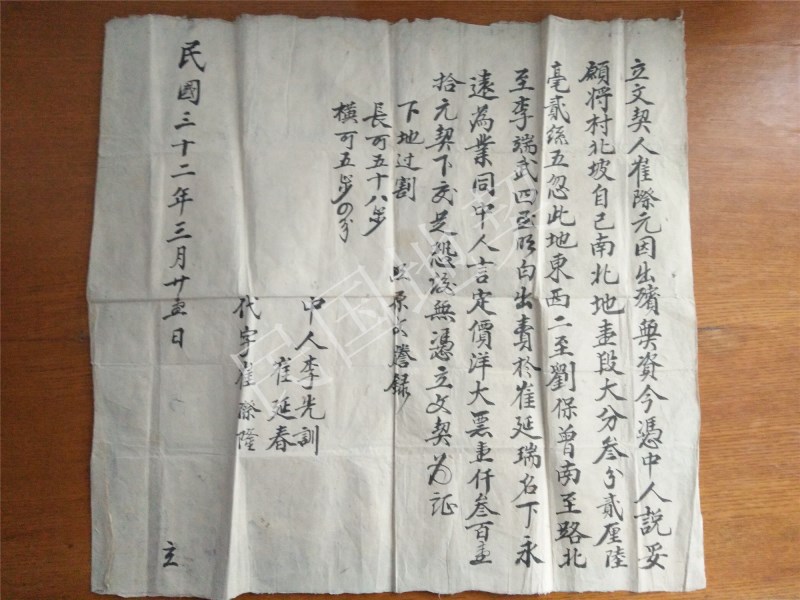 立文契人崔際元因出殯無資今憑中人説妥
願將村北坡自己南北地壹段大分叁分貳厘陸
毫貳絲五忽此地東西二至劉保曾南至路北
至李端武四至明白出賣於崔延瑞名下永
遠為業同中人言定價洋大票壹仟叁百壹
拾元契下交足恐後無憑立文契為証
下地过割
長可五十八步
橫可五步０分
照原文謄録
中人李先訓
崔延春
代字崔際隆
民國三十二年三月廿五日
立
民国地契